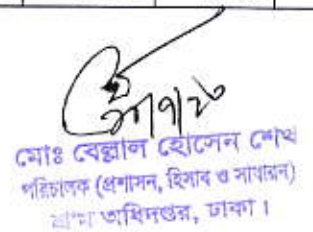 মোঃ বেল্লাল হোসেন শেখ
পরিচালক (প্রশাসন, হিসাব ও সাধারন)
অধিদপ্তর, ঢাকা।